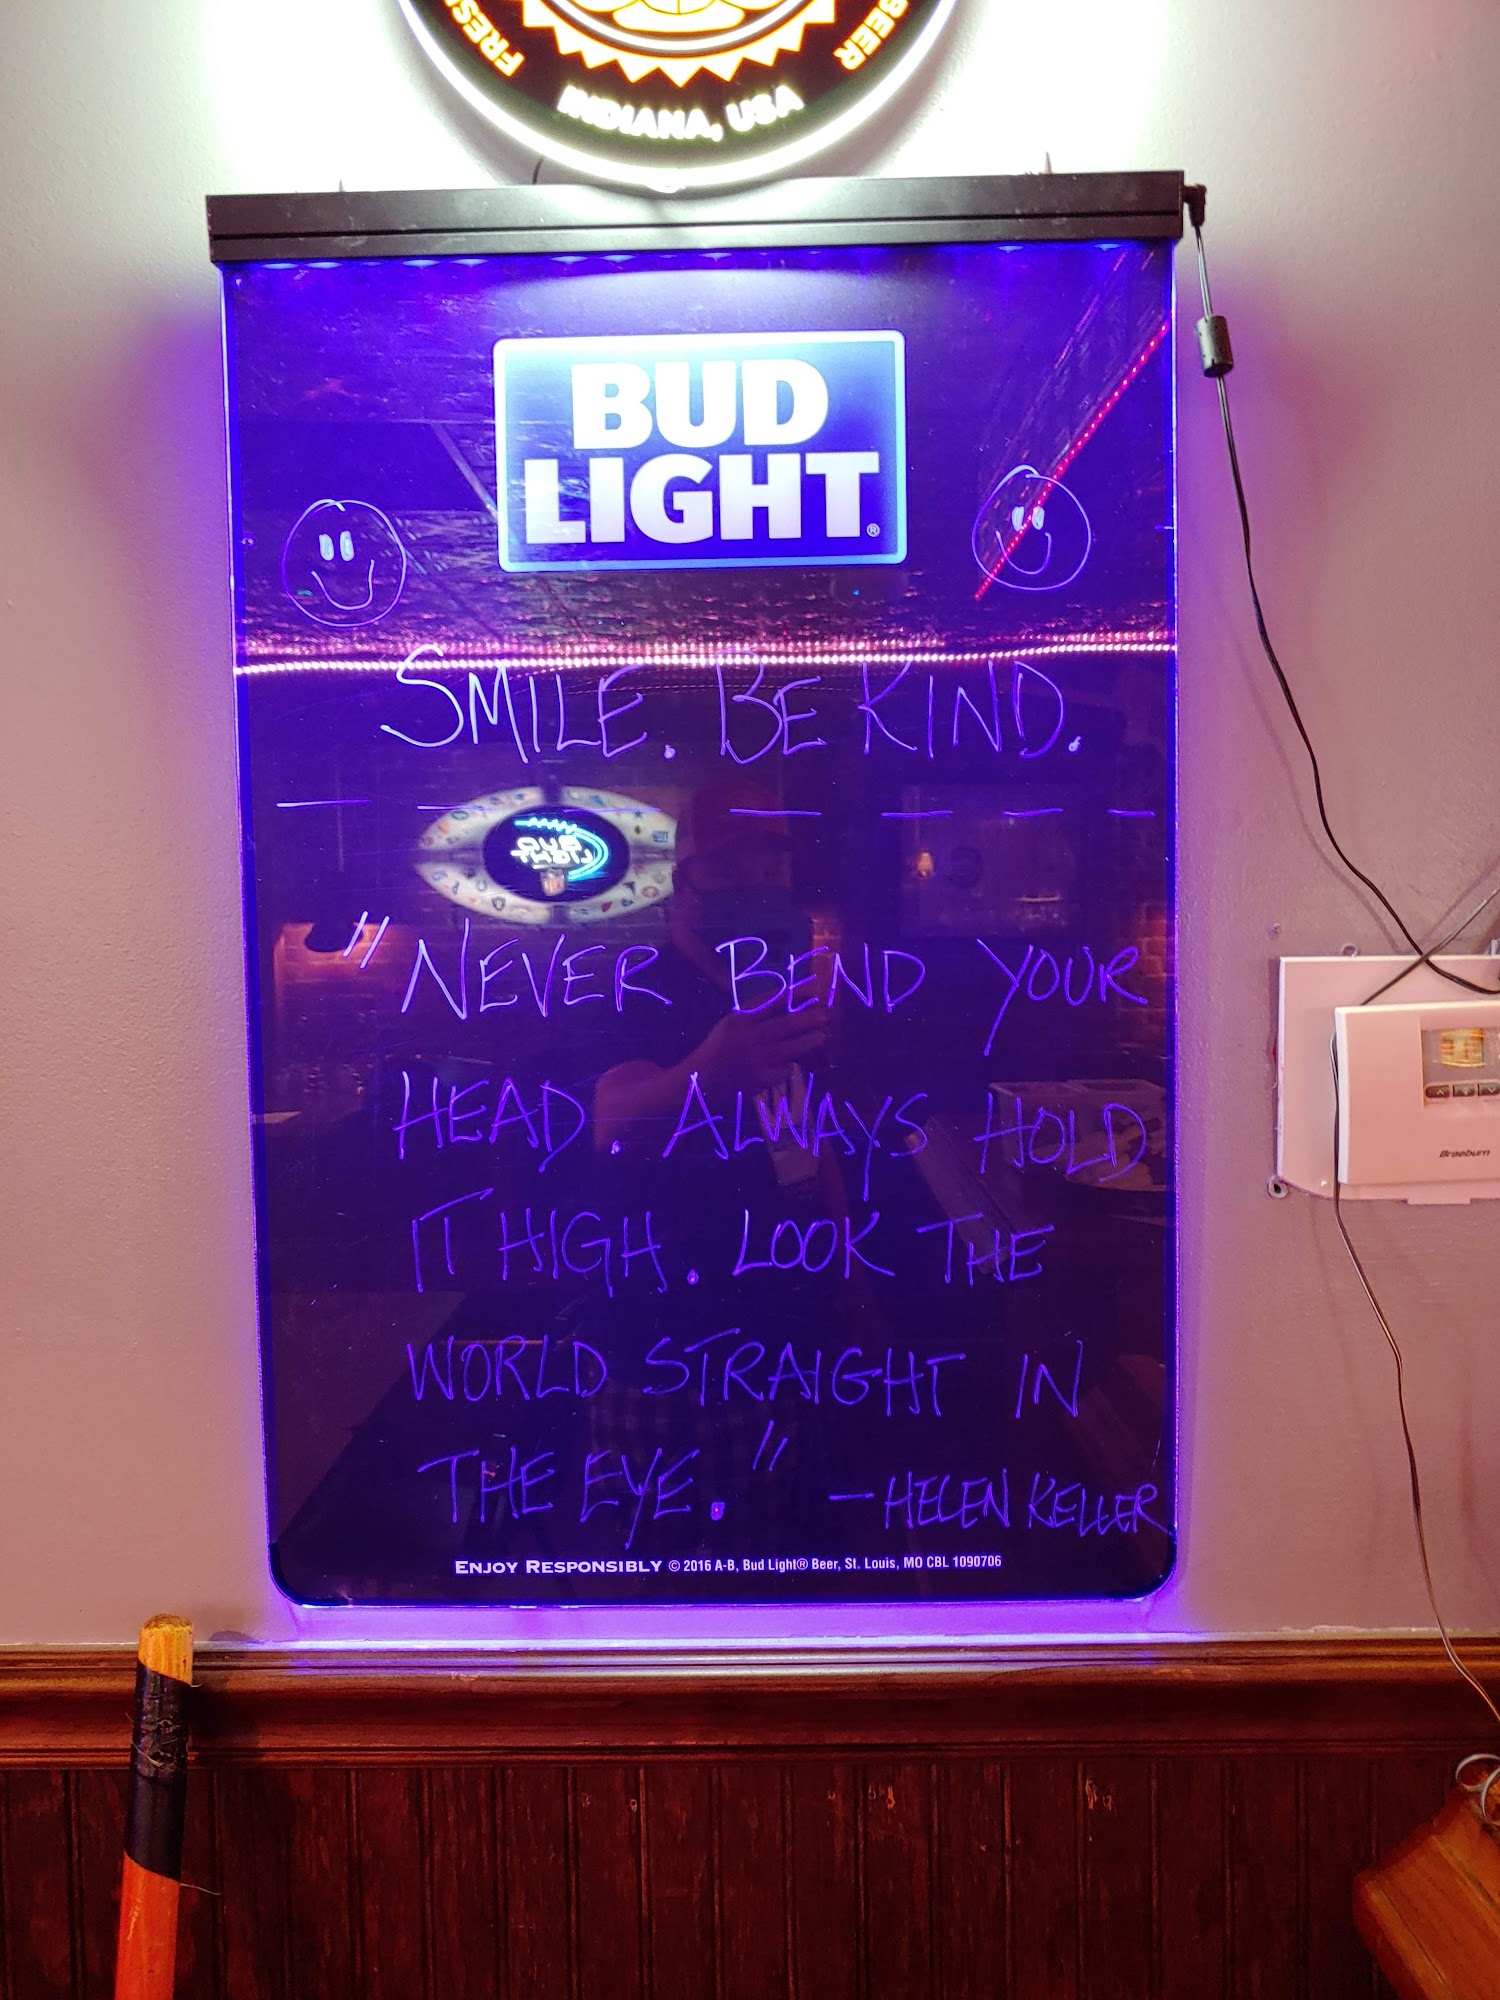 FRESH BEER
INDIANA, USA
BUD
LIGHT®
SMILE. BE KIND.
BUD
LIGHT
"NEVER BEND YOUR
HEAD. ALWAYS HOLD
IT HIGH. LOOK THE
WORLD STRAIGHT IN
THE EYE." — HELEN KELLER
ENJOY RESPONSIBLY © 2016 A-B, Bud Light® Beer, St. Louis, MO CBL 1090706
Braeburn